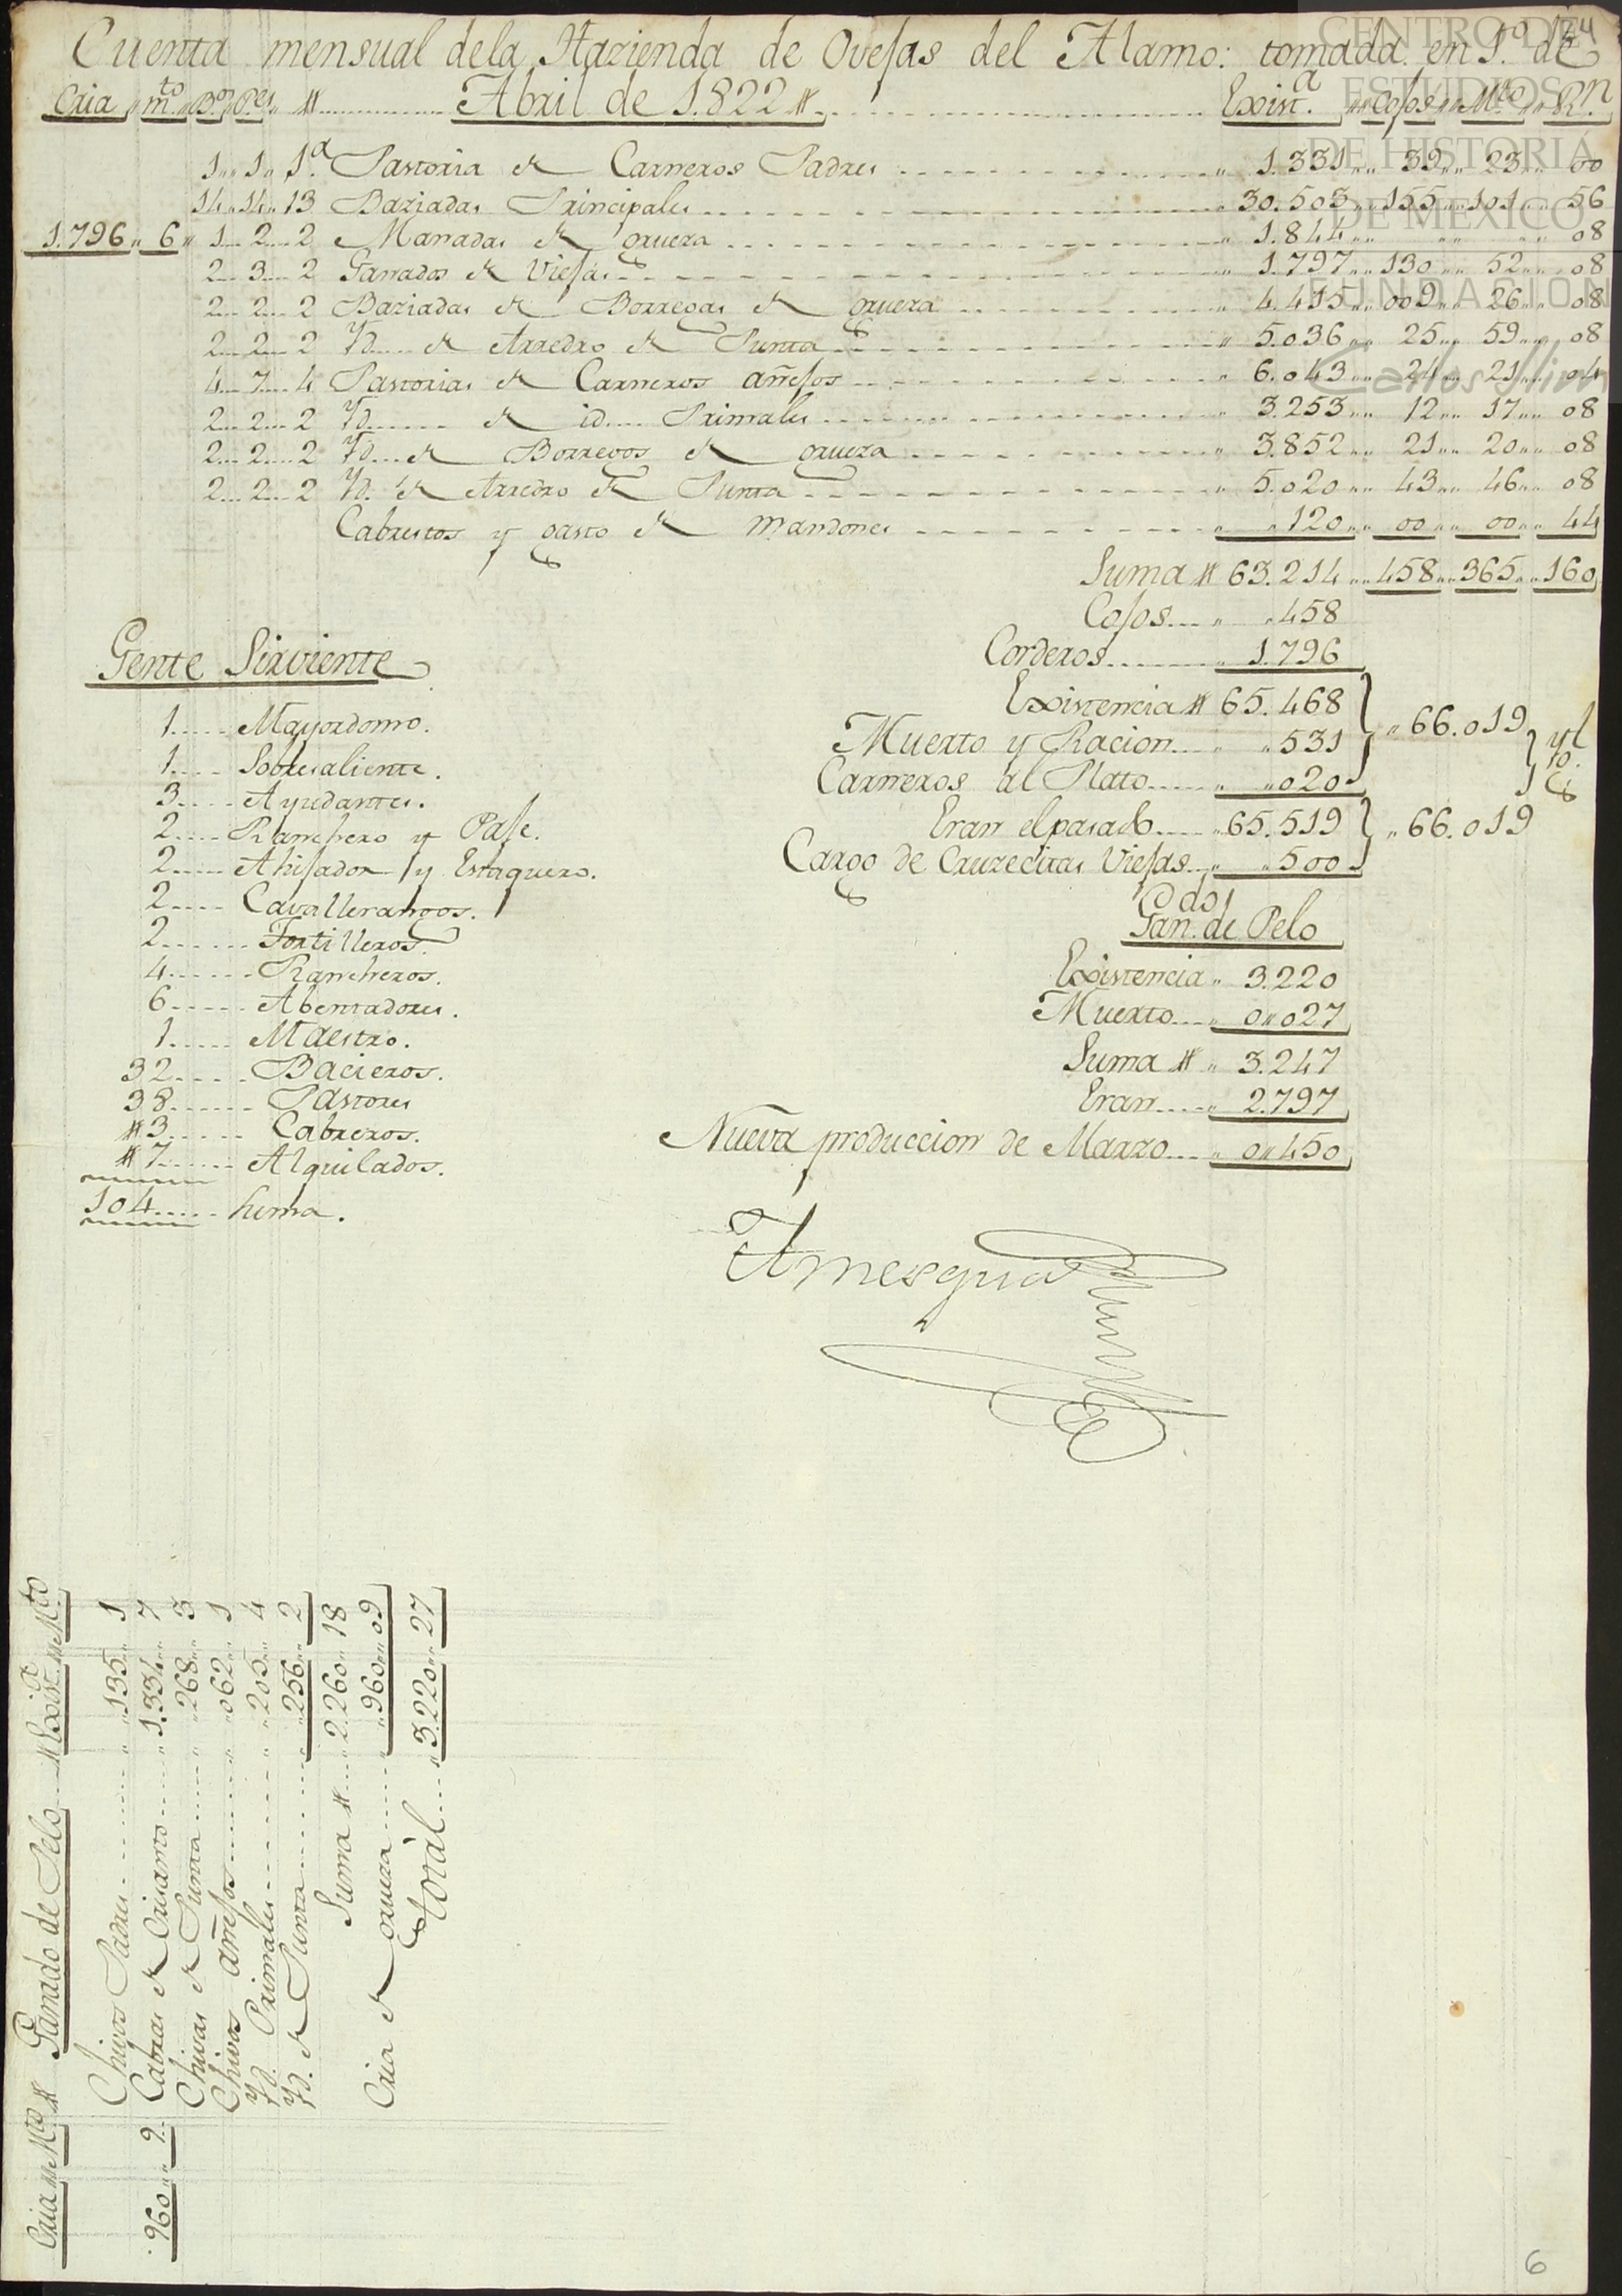 Cuenta mensual dela Hazienda de Ovejas del Alamo: tomada en 1.º de
Cria " m.to " B.os " P.es " # ............ Abril de 1.822 # ............ Exist.a " Cojos " M.to " R.n
1 " 1 " 1.a Pastoria de Carneros Padres ............ " 1.331 " 39 " 23 " 00
14 " 14 " 13 Baziadas Principales ............ " 30.503 " 155 " 101 " 56
1.796 " 6 " 1 .. 2 .. 2 Manadas de cruza ............ " 1.844 " " " " 08
2 .. 3 .. 2 Ganados de Viejas ............ " 1.797 " 130 " 52 " 08
2 .. 2 .. 2 Baziadas de Borregas de cruza ............ " 4.415 " 009 " 26 " 08
2 .. 2 .. 2 Yd. .... de Arredro de Punta ............ " 5.036 " 25 " 59 " 08
4 .. 7 .. 4 Pastorias de Carneros añejos ............ " 6.043 " 24 " 21 " 04
2 .. 2 .. 2 Yd. .... de id. .... Primales ............ " 3.253 " 12 " 17 " 08
2 .. 2 .. 2 Yd. ... de Borregos de cruza ............ " 3.852 " 21 " 20 " 08
2 .. 2 .. 2 Yd. de Arredro de Punta ............ " 5.020 " 43 " 46 " 08
Cabrestos y gasto de mandones ............ " " 120 " 00 " 00 " 44
Suma # 63.214 " 458 " 365 " 160
Cojos .... " " 458
Corderos ........ " 1.796
Existencia # 65.468
Muerto y Racion .... " " 531 " 66.019
Carneros al Plato ..... " " 020
Eran el pasado .... " 65.519 " 66.019
Cargo de Cruzecitas Viejas .. " " 500
yg.l
Gan.do de Pelo
Existencia " 3.220
Muerto .... " 0 " 027
Suma # " 3.247
Eran ..... " 2.797
Nueva produccion de Marzo .... " 0 " 450
Gente Sirviente
1 ..... Mayordomo.
1 .... Sobresaliente.
3 .... Ayudantes.
2 .... Ranchero y Paje.
2 ..... Ahijador y Estaquero.
2 .... Cavallerangos.
2 ...... Tortilleros
4 ...... Rancheros.
6 ..... Abentadores.
1 ..... Maestro.
32 ..... Bacieros.
38 ...... Pastores
# 3 ..... Cabreros.
# 7 ...... Alquilados.
104 ..... suma.
Cria " M.to # Ganado de Pelo .... # Exist.a " M.to
Chivos Padres ........ " " 135 " 1
960 " 9 Cabras de Criamto ..... " 1.334 " 7
Chivas de Punta ...... " " 268 " 3
Chivos añejos ........ " " 062 " 1
Yd. Primales ......... " " 205 " 4
Yd. de Punta ......... " " 256 " 2
Suma # ... " 2.260 " 18
Cria de cruza ...... " " 960 " 09
Total .... " 3.220 " 27
6
CENTRO DE
ESTUDIOS
DE HISTORIA
DE MEXICO
FUNDACION
Carlos Slim